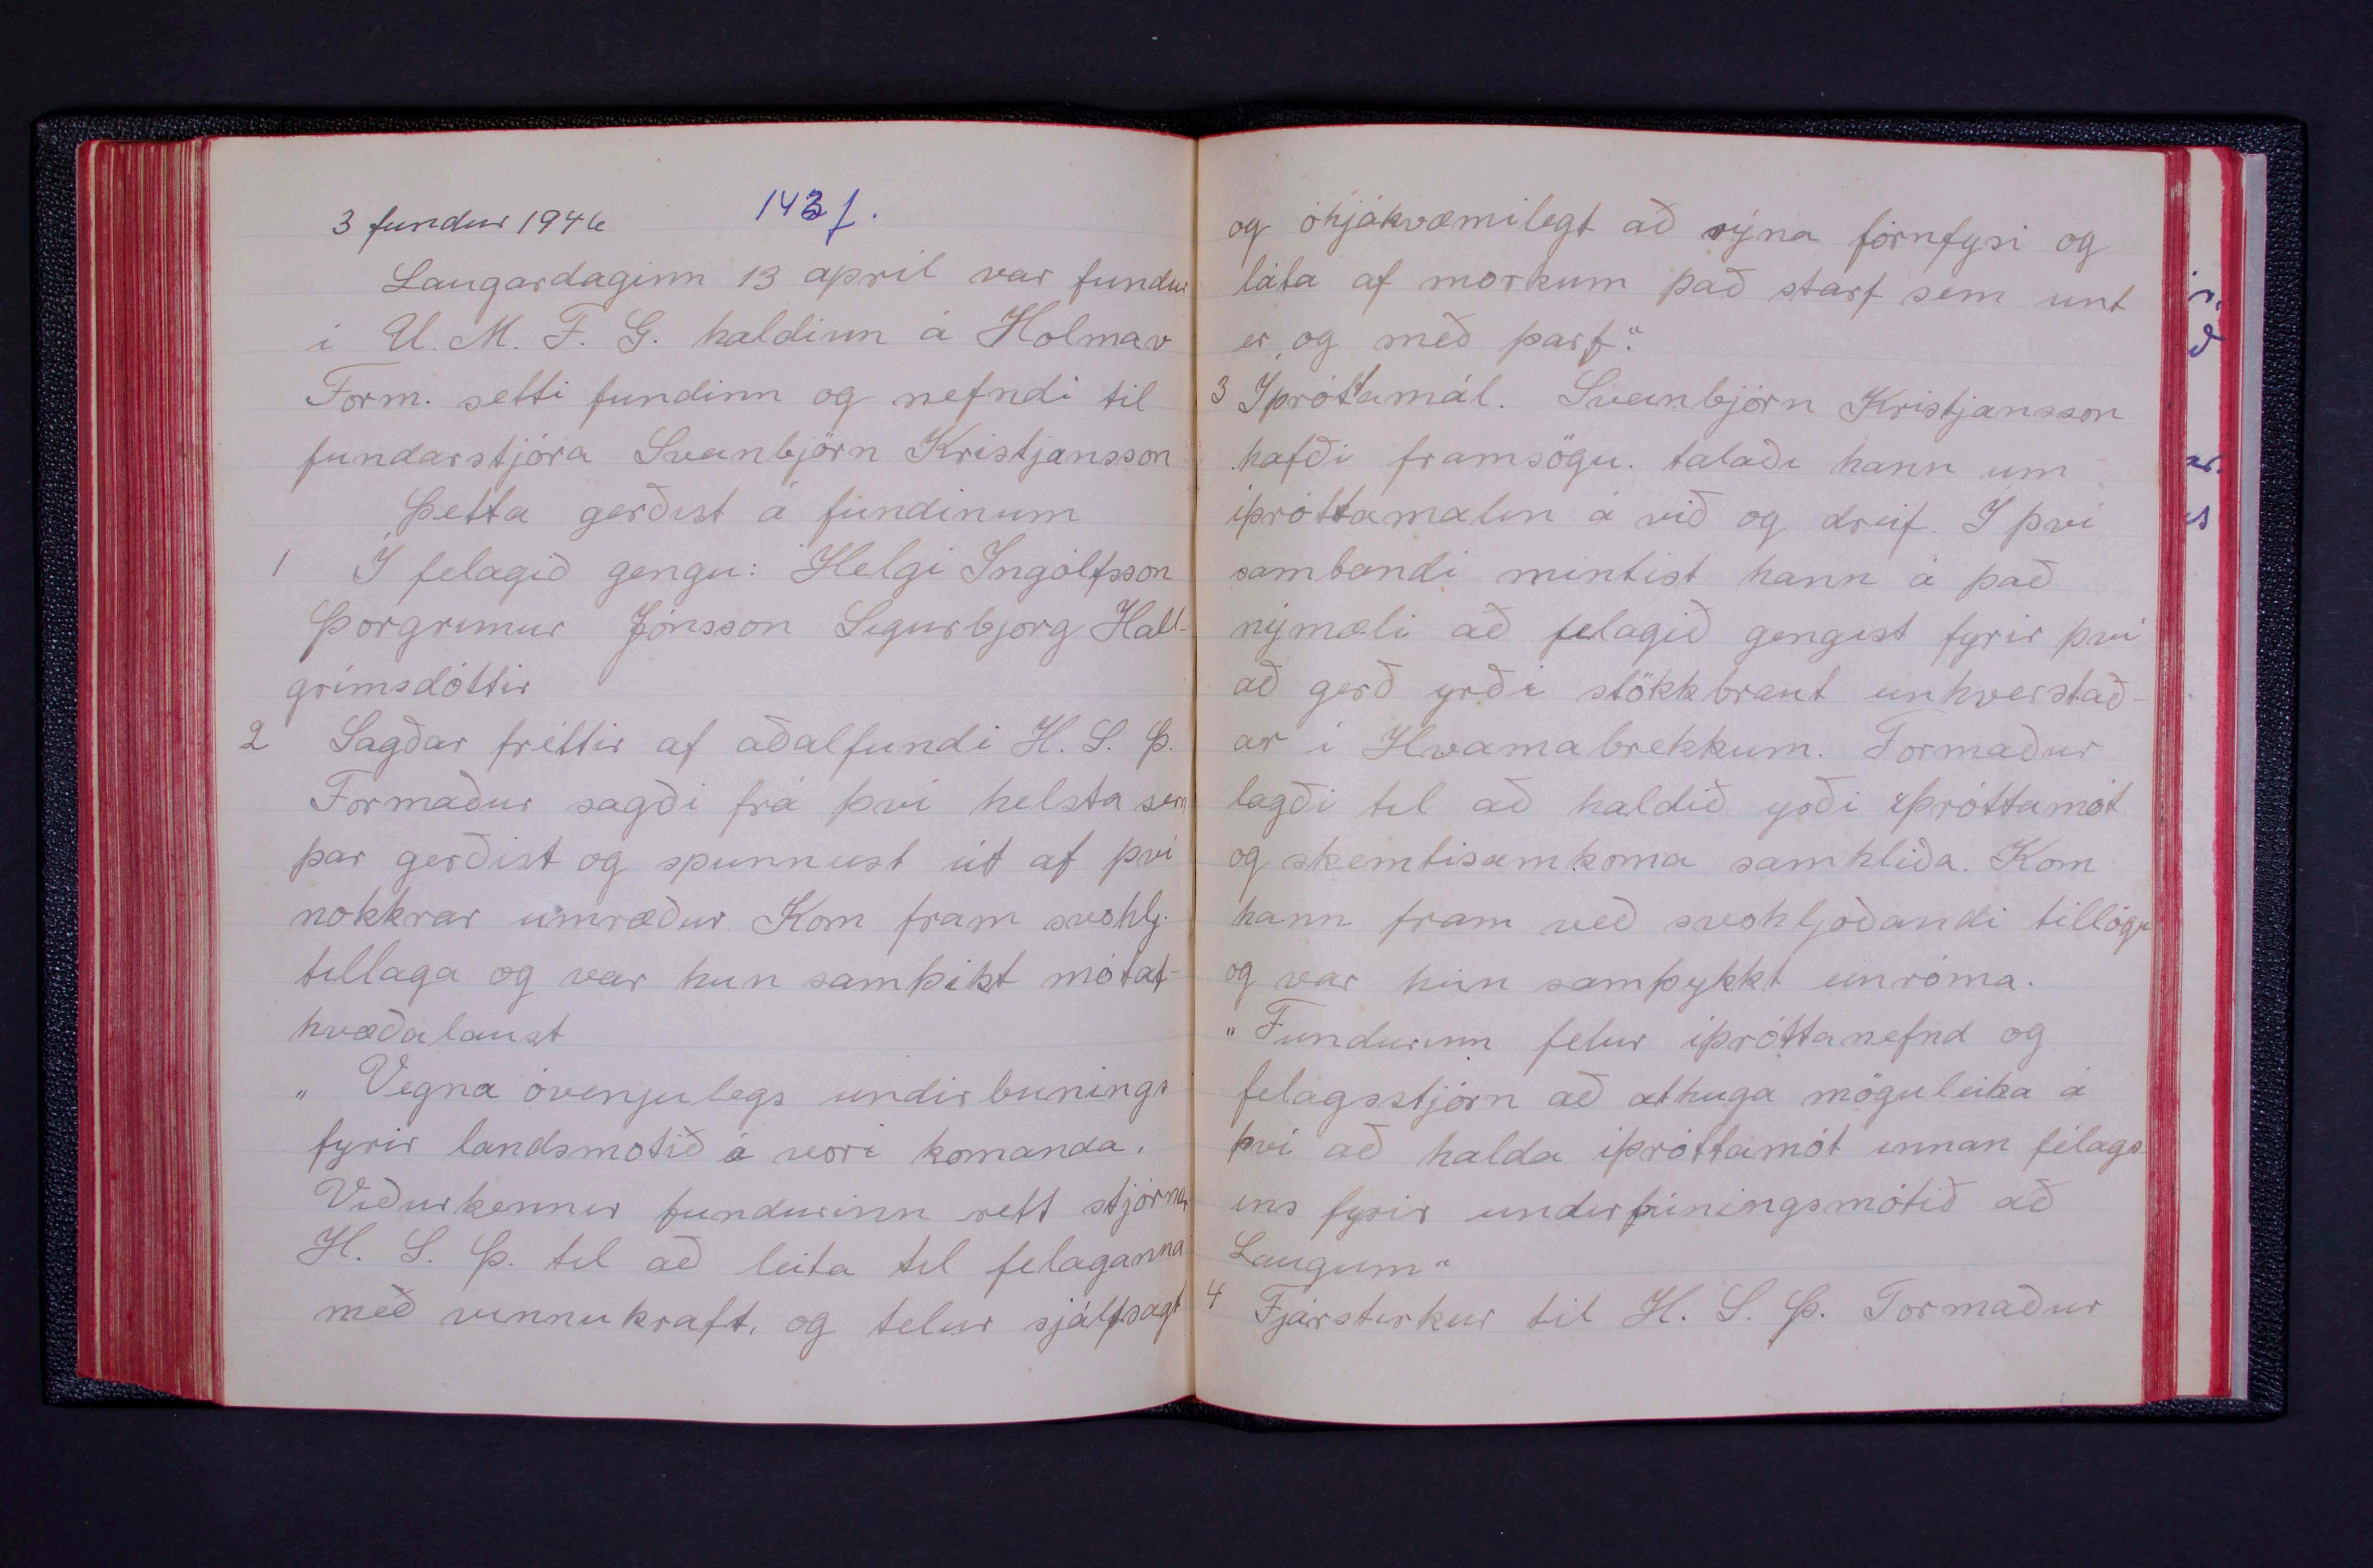 3 fundur 1946
143 f.
Laugardaginn 13 april var fundur
i U. M. F. G. haldinn á Holmav
Form. setti fundinn og nefndi til
fundarstjóra Svanbjörn Kristjansson
Þetta gerðist á fundinum
1 Í felagið gengu: Helgi Ingólfsson
Þorgrimur Jónsson Sigurbjorg Hall-
grímsdóttir
2 Sagðar fréttir af aðalfundi H. S. Þ.
Formaður sagði frá því helsta sem
þar gerðist og spunnust út af því
nokkrar umræður Kom fram svohlj.
tillaga og var hun samþikt mótat-
kvæðalaust
„ Vegna óvenjulegs undirbunings
fyrir landsmotið á vori komanda.
Viðurkennir fundurinn rétt stjórnar
H. S. Þ. til að leita til felaganna
með vinnukraft, og telur sjálfsagt
og óhjákvæmilegt að sýna fórnfysi og
láta af morkum það starf sem unt
er og með þarf."
3 Iþróttamál. Svanbjörn Kristjansson
hafði framsögu. talaði hann um
iþróttamalin á við og dreif. I því
sambandi mintist hann á það
nýmæli að felagið gengist fyrir því
að gerð yrði stökkbraut einhverstað-
ar i Hvamabrekkum. Formaður
lagði til að haldið yrði iþróttamót
og skemtisamkoma samhliða. Kom
hann fram með svohljóðandi tillögu
og var hún samþykkt einróma.
„ Fundurinn felur iþróttanefnd og
felagsstjórn að athuga möguleika á
því að halda iþróttamót innan félags
ins fyrir undirbúningsmótið að
Laugum"
4 Fjárstirkur til H. S. Þ. Formaður